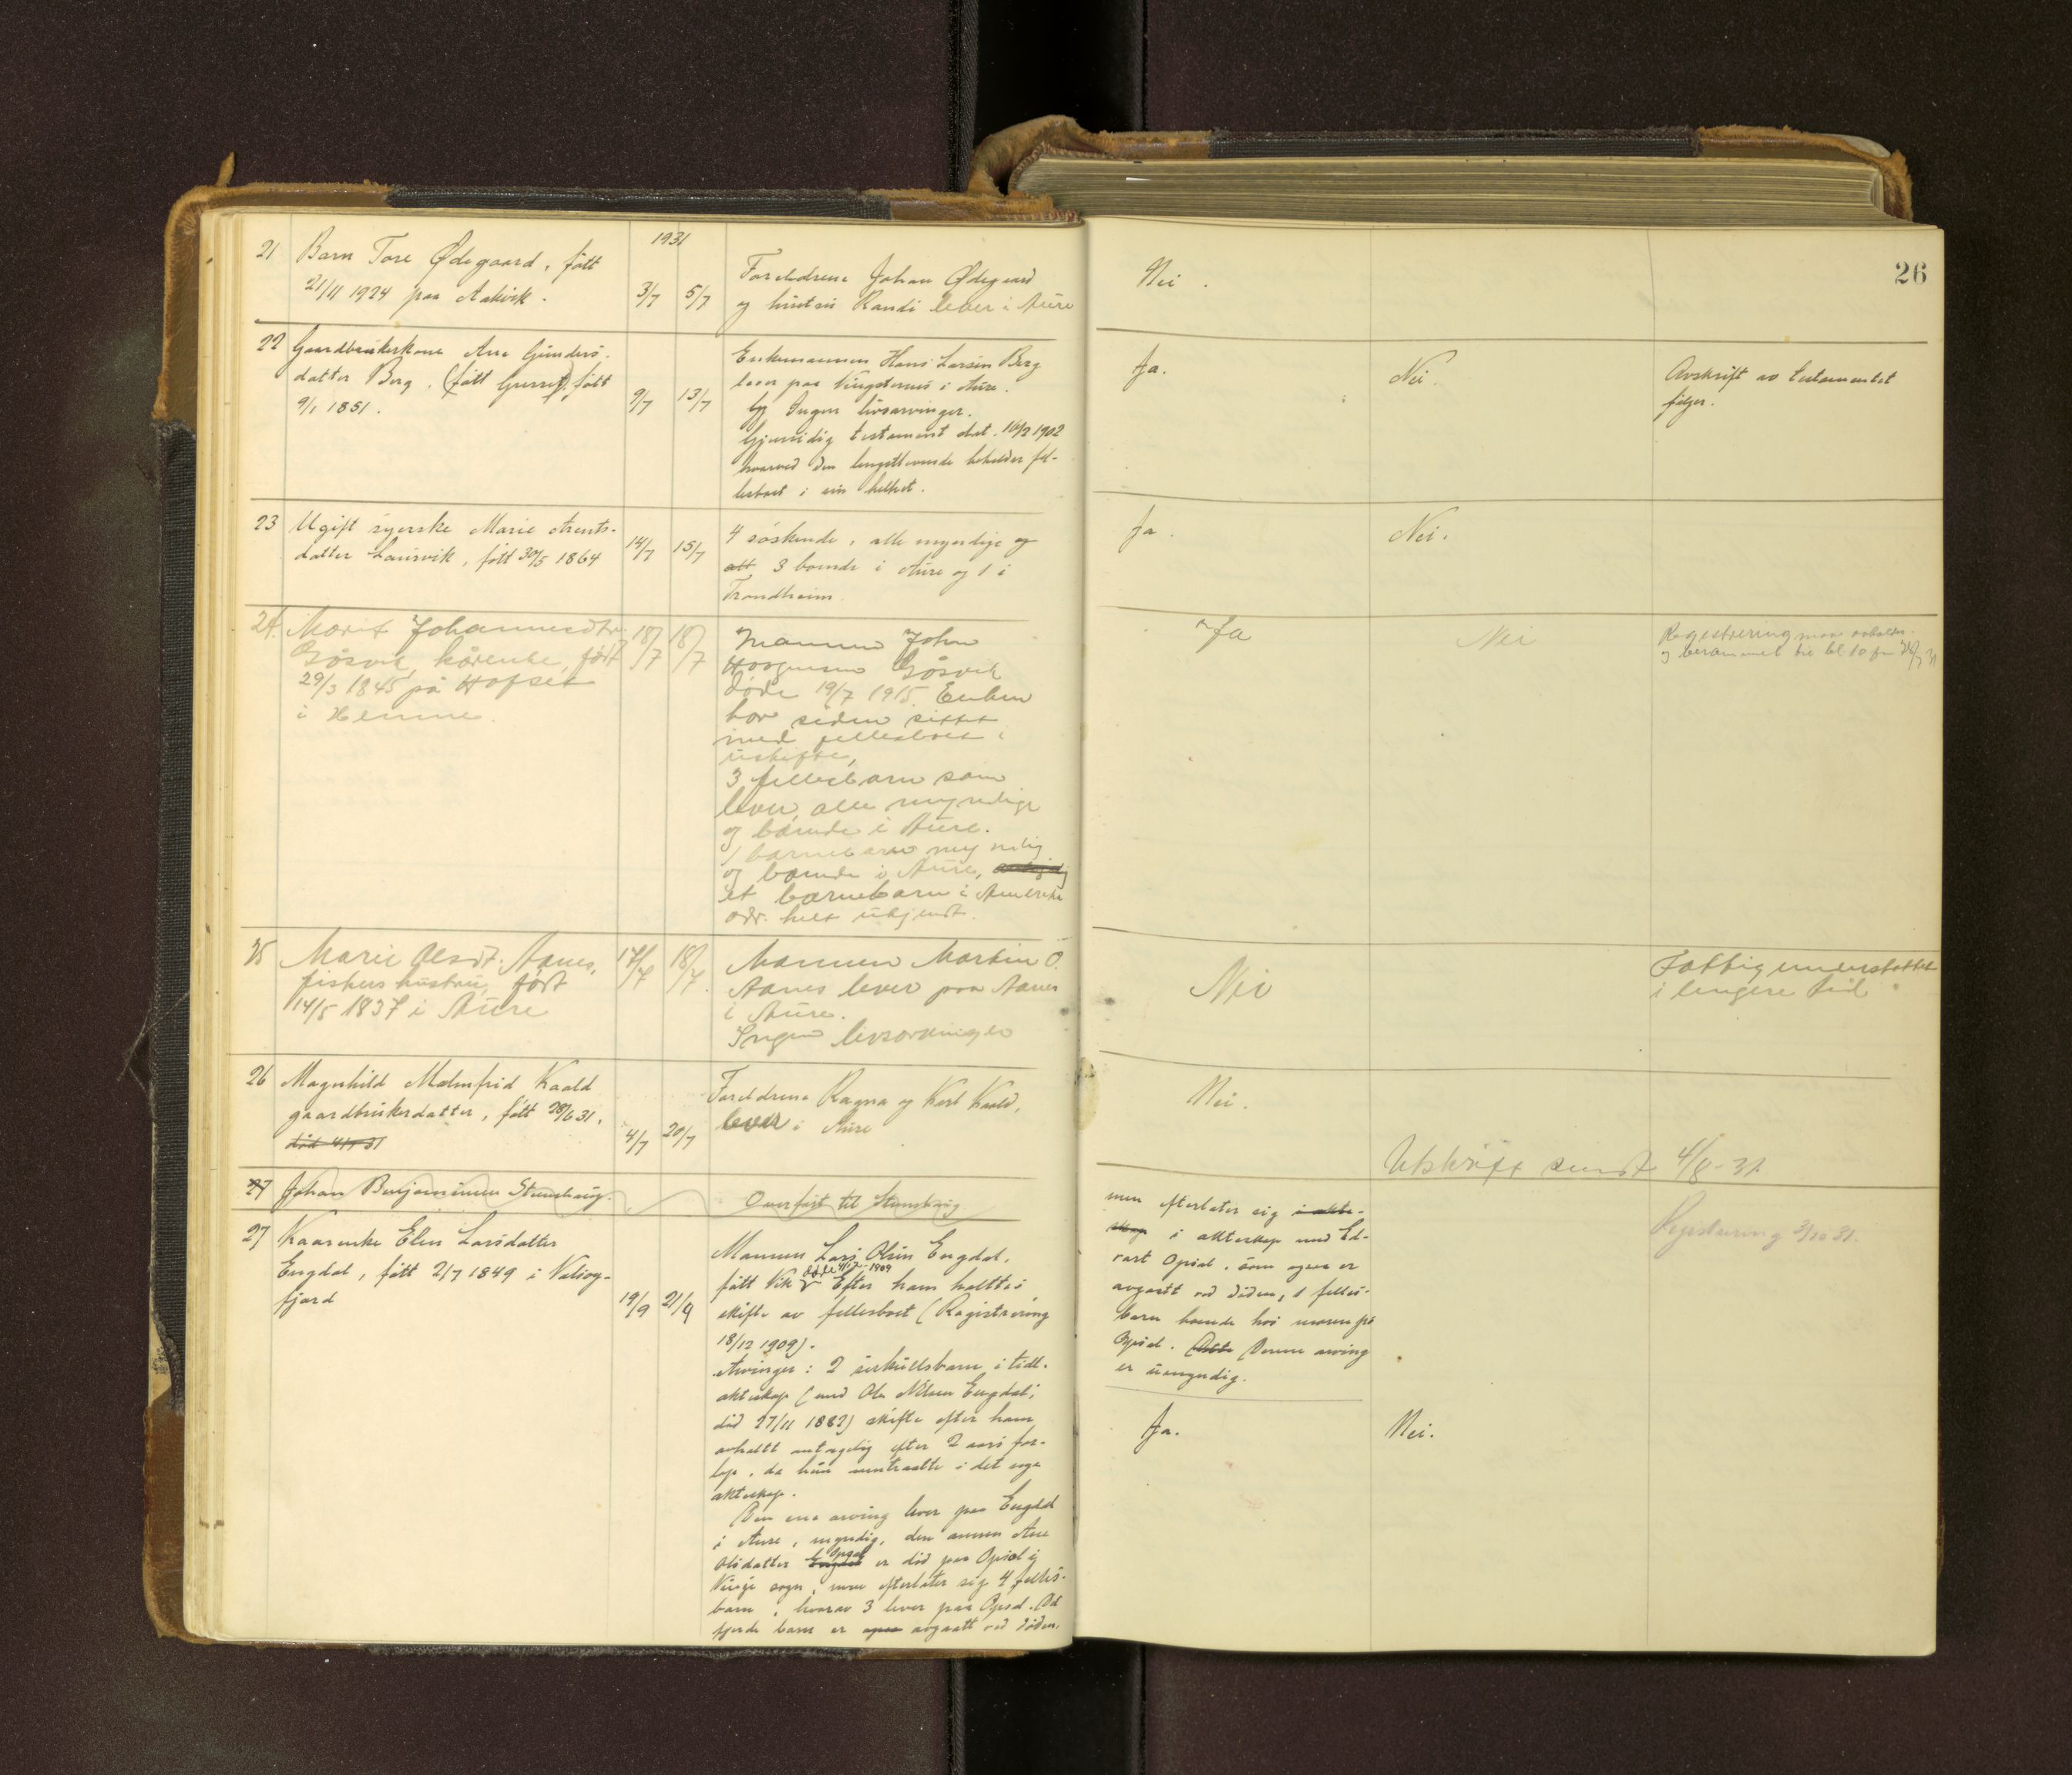 1931
26
21 Barn Tore Ødegaard, født
21/11 1924 paa Aakvik.
3/7 5/7
Foreldrene Johan Ødegaard
og hustru Randi lever i Aure
Nei.
22 Gaardbrukerkone Ane Gunders-
datter Berg. (født Grunset), født
9/1 1851.
9/7 13/7
Enkemannen Hans Larsen Berg
lever paa Ringsternes i Aure.
Ingen livsarvinger.
Gjensidig testament dat. 10/2 1902
hvorved den lengstlevende beholder fel-
lesboet i sin helhet.
Ja.
Nei.
Avskrift av testamentet
følger.
23 Ugift syerske Marie Arents-
datter Laurvik, født 30/5 1864
14/7 15/7
4 søskende, alle myndige og
3 boende i Aure og 1 i
Trondheim.
Ja.
Nei.
24. Marit Johannesdtr
Gåsvik, kårenke, født
29/3 1845 på Hofset
i Hemne.
18/7 18/7
Mannen John
Gåsvik
døde 19/7 1915. Enken
har siden sittet
med fellesboet i
uskifte,
3 fellesbarn som
lever, alle myndige
og boende i Aure.
1 barnebarn myndig
og boende i Aure,
et barnebarn i Amerika
adr. helt ukjendt.
Ja
Nei
Registrering maa avholdes
og berammet til kl 10 fm
25 Marie Olsdt. Aanes,
fiskers hustru, født
14/5 1837 i Aure
17/7 18/7.
Mannen Martin O.
Aanes lever paa Aanes
i Aure.
Ingen livsarvinger
Nei
Fattigunderstøttet
i lengere tid.
26 Magnhild Malmfrid Kaald
gaardbrukerdatter, født 28/6 31.
død 4/7 31
4/7 20/7
Foreldrene Ragna og Karl Kaald,
lever i Aure
Nei.
Utskrift sendt 4/8-31
27 Johan Benjaminsen Stenshaug.
Overført til Stenshaug.
27 Kaarenke Elen Larsdatter
Engdal, født 2/7 1849 i Valsøy-
fjord
19/9 21/9
Mannen Lars Olsen Engdal,
døde 4/12 1909
født Vik Efter ham holdtes
skifte av fellesboet (Registrering
18/12 1909).
Arvinger: 2 særkullsbarn i tidl.
ekteskap (med Ole Nilsen Engdal;
død 27/11 1882) skifte efter ham
avholdt antagelig efter 2 aars for-
løp, da hun inntraatte i det nye
ekteskap.
Den ene arving lever paa Engdal
i Aure, myndig, den annen Ane
Olsdatter Engdal Opsal er død paa Opsal i
Vinje sogn, men efterlater sig 4 felles-
barn, hvorav 3 lever paa Opsal. Det
fjerde barn er ogsaa avgaatt ved døden,
men efterlater sig i ekte-
skap i ekteskap med Ed-
vart Opsal, som ogsaa er
avgaatt ved døden, 1 felles-
barn boende hos moren på
Opsal. Denne arving
er umyndig.
Ja.
Nei.
Registrering 3/10 31.